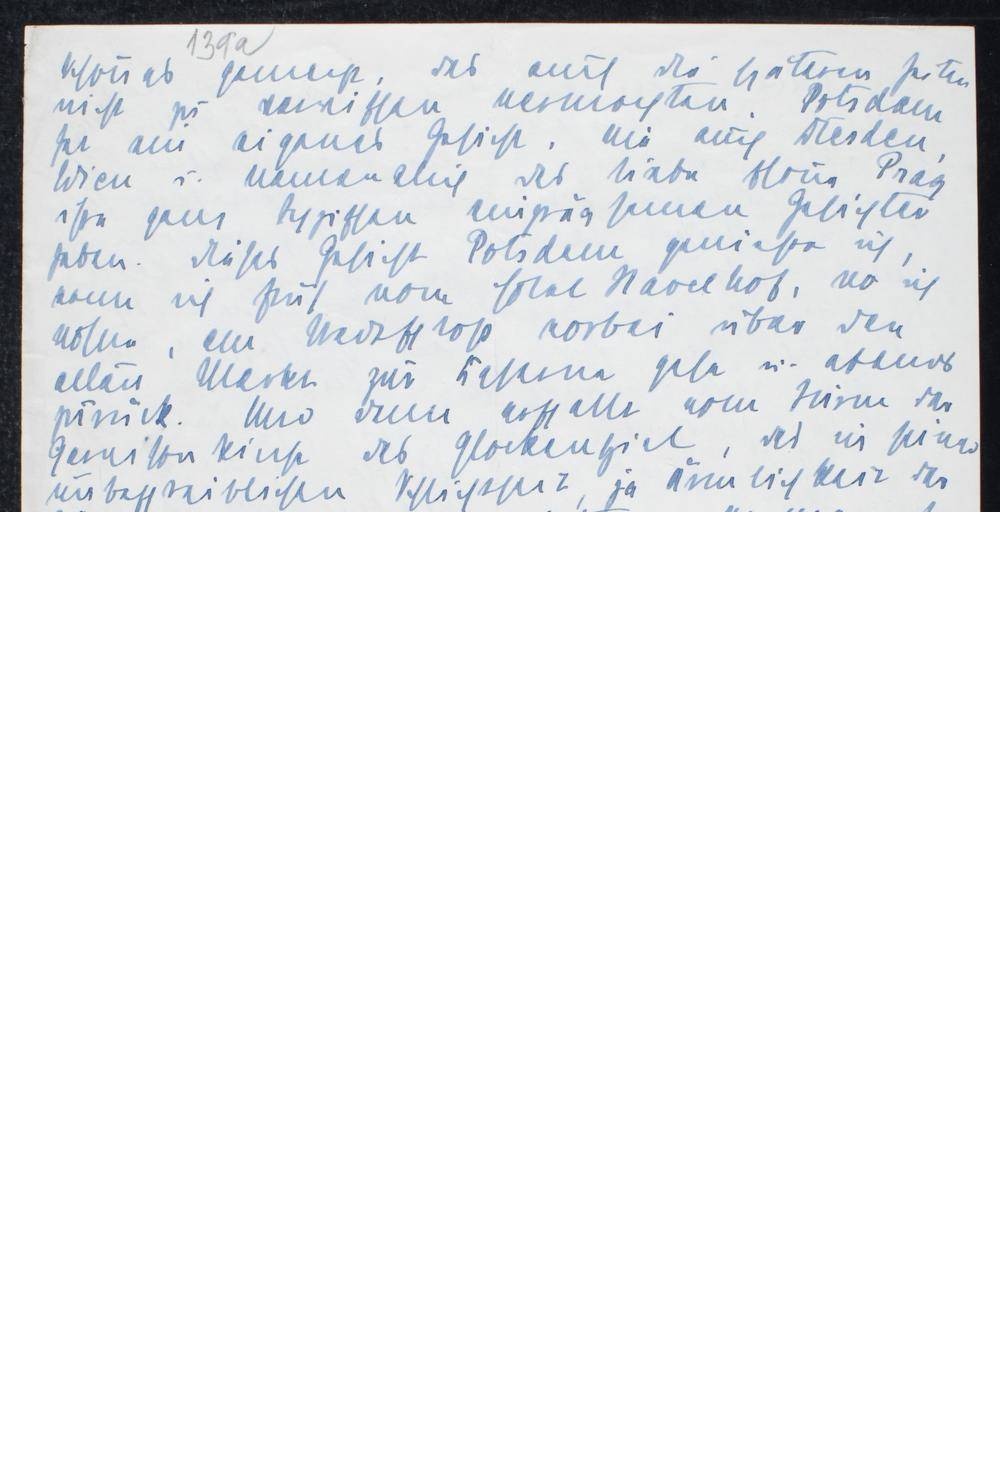 139a
Schönes gemacht, das auch die späteren Zeiten
nicht zu verwischen vermochten. Potsdam
hat ein eigenes Gesicht, wie auch Dresden,
Wien u. namentlich das liebe schöne Prag
ihre ganz typischen einprägsamen Gesichter
haben. Dieses Gesicht Potsdam genieße ich,
wenn ich früh vom Hotel Havelhof, wo ich
wohne, am Stadtschloß vorbei über den
alten Markt zur Kaserne gehe u. abends
zurück. Und dann erschallt vom Turm der
Garnisonkirche das Glockenspiel, das in seiner
unbeschreiblichen Schlichtheit, ja Ärmlichkeit der